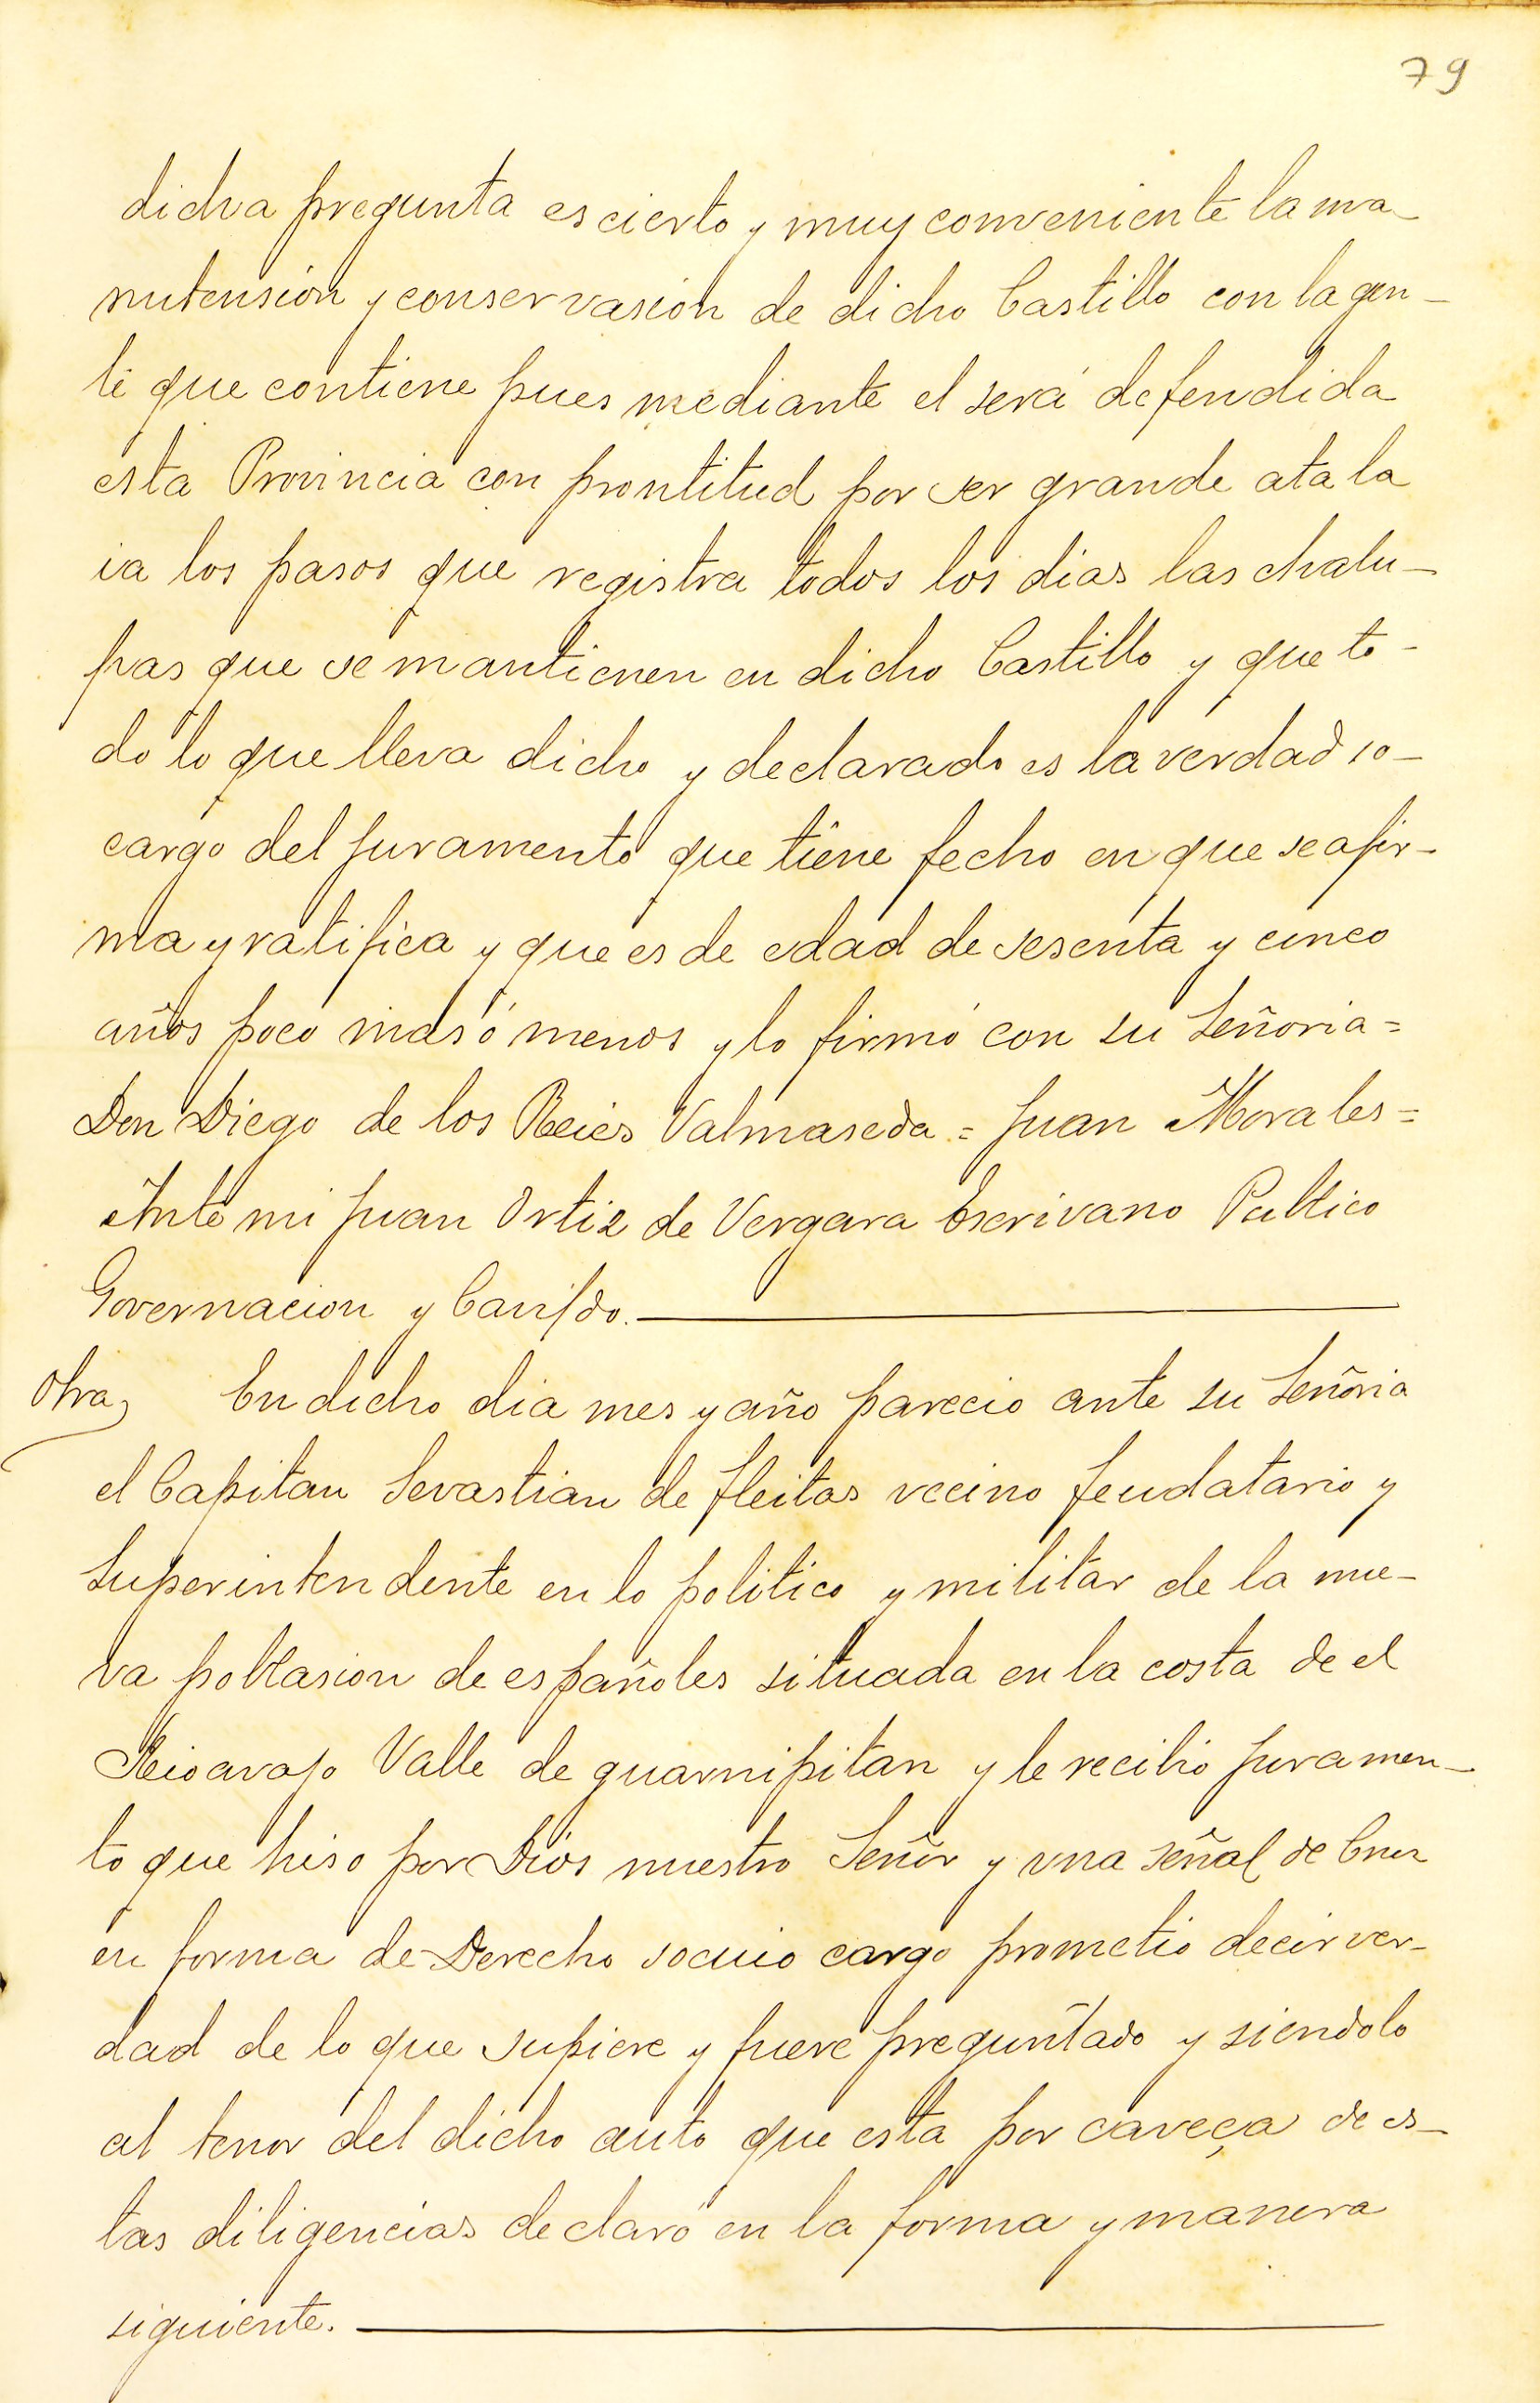 79
dicha pregunta es cierto y muy conveniente la ma-
nutension y conservasion de dicho Castillo con la gen-
te que contiene pues mediante el será defendida
esta Provincia con prontitud por ser grande atala
ia los pasos que registra todos los dias las chalu-
pas que se mantienen en dicho Castillo y que to-
do lo que lleva dicho y declarado es la verdad so-
cargo del juramento que tiene fecho en que se afir-
ma y ratifica y que es de edad de sesenta y cinco
años poco mas ó menos y lo firmó con su Señoria=
Don Diego de los Reies Valmaseda = Juan Morales=
Ante mi Juan Ortiz de Vergara Escrivano Publico
Governacion y Cavildo.
Otra, En dicho dia mes y año parecio ante su Señoria
el Capitan Sevastian de fleitas vecino feudatario y
Superintendente en lo politico y militar de la nue-
va poblasion de españoles situada en la costa de el
Rio avajo Valle de guarnipitan y le recibio juramen-
to que hiso por Dios nuestro Señor y vna señal de Cruz
en forma de Derecho socuio cargo prometio decir ver-
dad de lo que supiere y fuere preguntado y siendolo
al tenor del dicho auto que esta por caveça de es-
tas diligencias declaró en la forma y manera
siguiente.